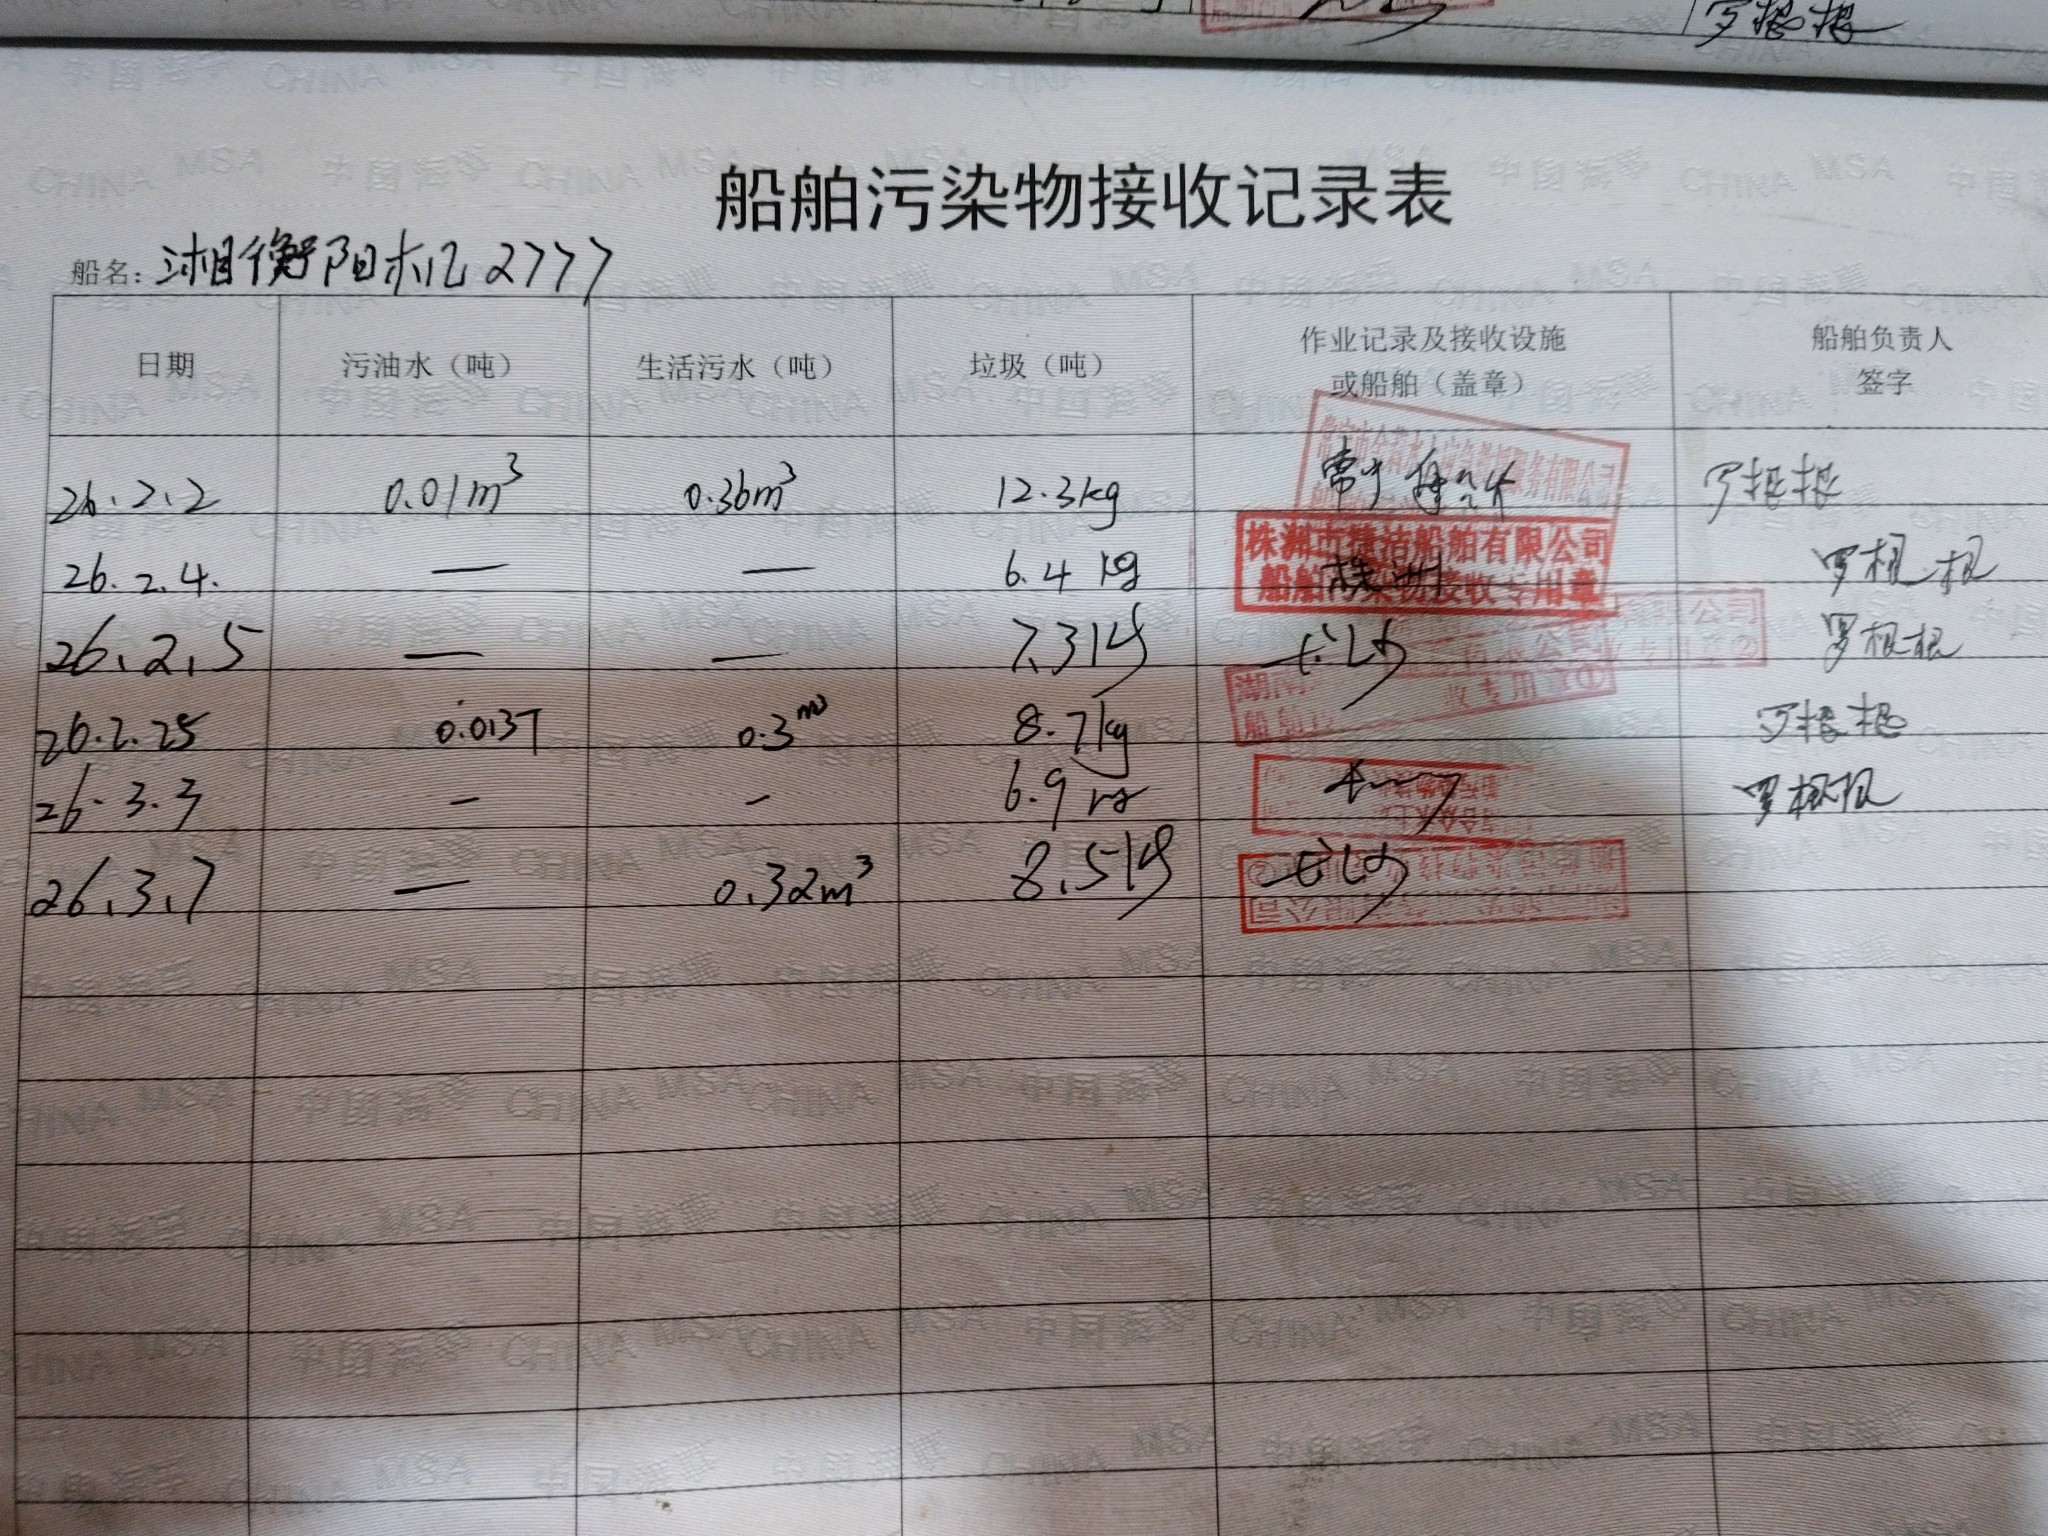 罗根根
船舶污染物接收记录表
船名：湘衡阳机2777
日期 污油水（吨） 生活污水（吨） 垃圾（吨） 作业记录及接收设施或船舶（盖章） 船舶负责人签字
26.2.2 0.01m³ 0.36m³ 12.3kg 罗根根
26.2.4. — — 6.4kg 株洲 罗根根
株洲市精洁船舶有限公司
船舶污染物接收专用章
26.2.5 — — 7.3kg 长沙 罗根根
26.2.25 0.013T 0.3m³ 8.7kg 罗根根
26.3.3 — — 6.9kg 罗根根
26.3.7 — 0.32m³ 8.5kg 长沙
中国海事 CHINA MSA